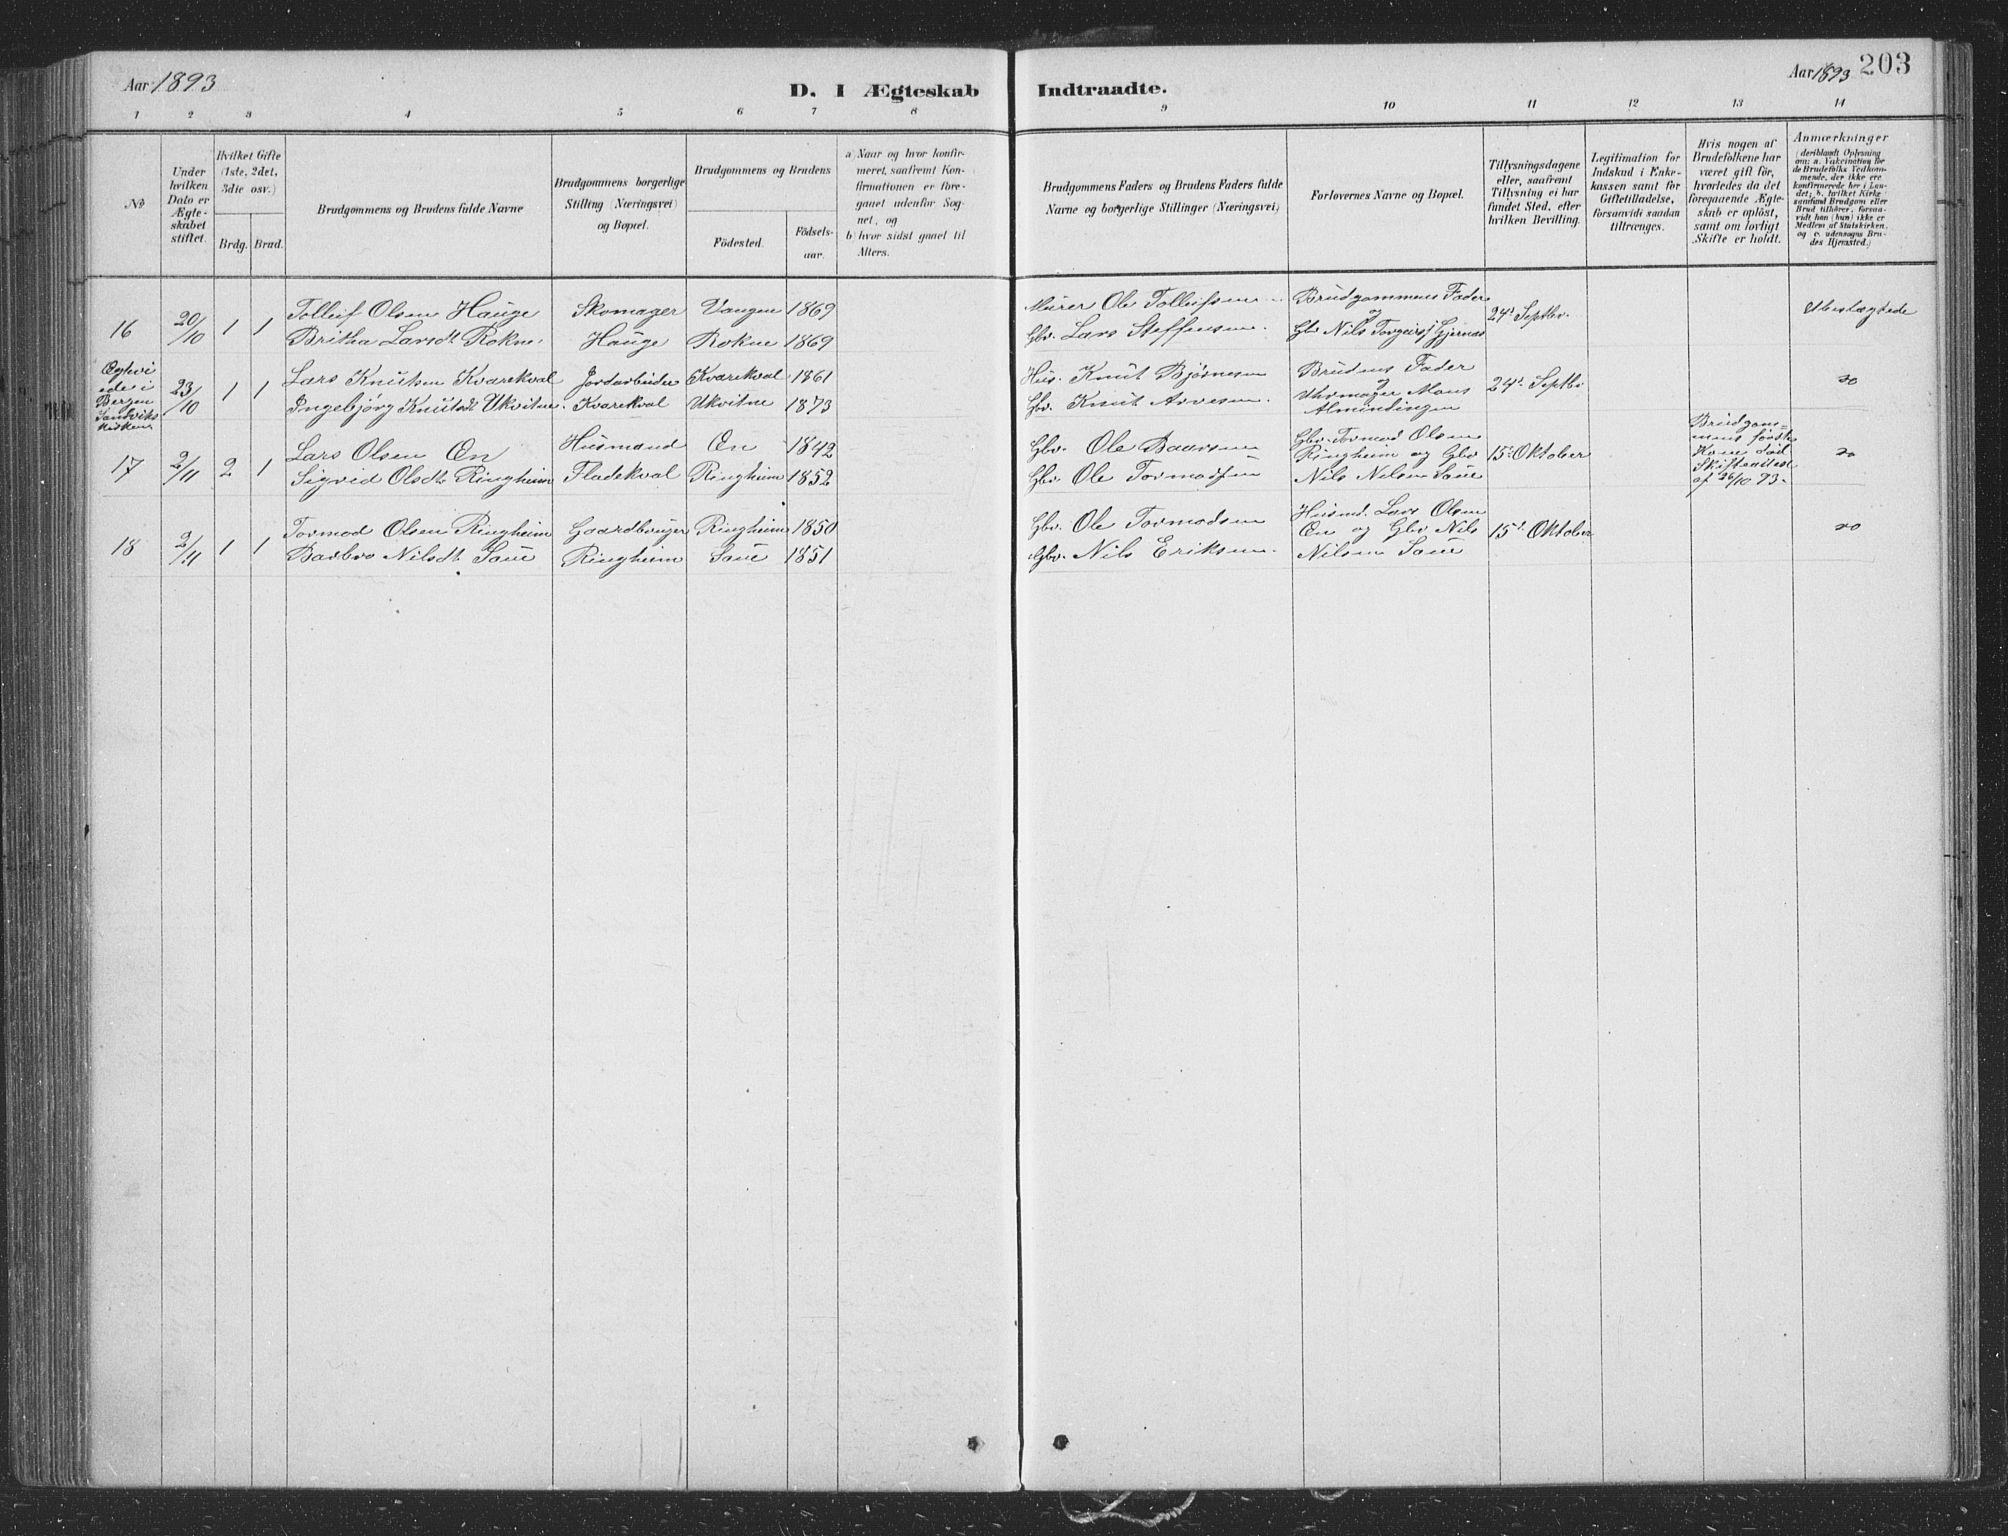 Aar 1893
D. I Ægteskab
Indtraadte.
Aar 1893
203
1 2 3 4 5 6 7 8 9 10 11 12 13 14
No
Under
hvilken
Dato er
Ægte-
skabet
stiftet.
Hvilket Gifte
(1ste, 2det,
3die osv.)
Brdg. Brud.
Brudgommens og Brudens fulde Navne
Brudgommens borgerlige
Stilling (Næringsvei)
og Bopæl.
Brudgommens og Brudens
Födested.
Födsels-
aar.
a) Naar og hvor konfir-
meret, saafremt Kon-
firmationen er fore-
gaaet udenfor Sog-
net, og
b) hvor sidst gaaet til
Alters.
Brudgommens Faders og Brudens Faders fulde
Navne og borgerlige Stillinger (Næringsvei)
Forlovernes Navne og Bopæl.
Tillysningsdagene
eller, saafremt
Tillysning ei har
fundet Sted, efter
hvilken Bevilling.
Legitimation for
Indskud i Enke-
kassen samt for
Giftetilladelse,
forsaavidt saadan
tiltrænges.
Hvis nogen af
Brudefolkene har
været gift för,
hvorledes da det
foregaaende Ægte-
skab er oplöst,
samt om lovligt
Skifte er holdt.
Anmærkninger
(deriblandt Oplysning
om: a. Vakcination for
de Brudefolks Vedkom-
mende, der ikke ere
konfirmerede her i Lan-
det; b. hvilket Kirke-
samfund Brudgom eller
Brud tilhörer, forsaa-
vidt han (hun) ikke er
Medlem af Statskirken,
og c. udensogns Bru-
des Hjemsted.)
16 20/10 1 1 Tolleif Olsen Hauge Skomager Vangen 1869 Murer Ole Tolleifsen Brudgommens Fader 24d Septbr. Ubeslægtede
Britha Larsdt Rokne. Hauge Rokne 1869 Gbr. Lars Steffensen. og Gbr Nils Torgeirs/ Gjernes
Ægtevi
ede i
Bergen
Sandviks
kirken. 23/10 1 1 Lars Knutsen Kvarekval Jordarbeider Kvarekval 1861 Hus. Knut Bjørnesen Brudens Fader 24d Septbr do
Ingebjørg Knutsdt Ukvitne. Kvarekval Ukvitne 1873 Gbr. Knut Arvesen. og Uhrmager Mons
Almindingen
17 2/11 2 1 Lars Olsen Øn Husmand Øn 1842 Gbr. Ole Baarsen Gbr. Tormod Olsen 15d Oktober Brudgom-
mens første
Kone død
Skifteattest
af 26/10 93. do
Sigvid Olsdt Ringheim Fladekval Ringheim 1852 Gbr. Ole Tormodsen Ringheim og Gbr
Nils Nilsen Saue
18 2/11 1 1 Tormod Olsen Ringheim Gaardbruger Ringheim 1850 Gbr. Ole Tormodsen Husmd. Lars Olsen 15d. Oktober do
Barbro Nilsdt Saue Ringheim Saue 1851 Gbr. Nils Eriksen. Øn og Gbr Nils
Nilsen Saue